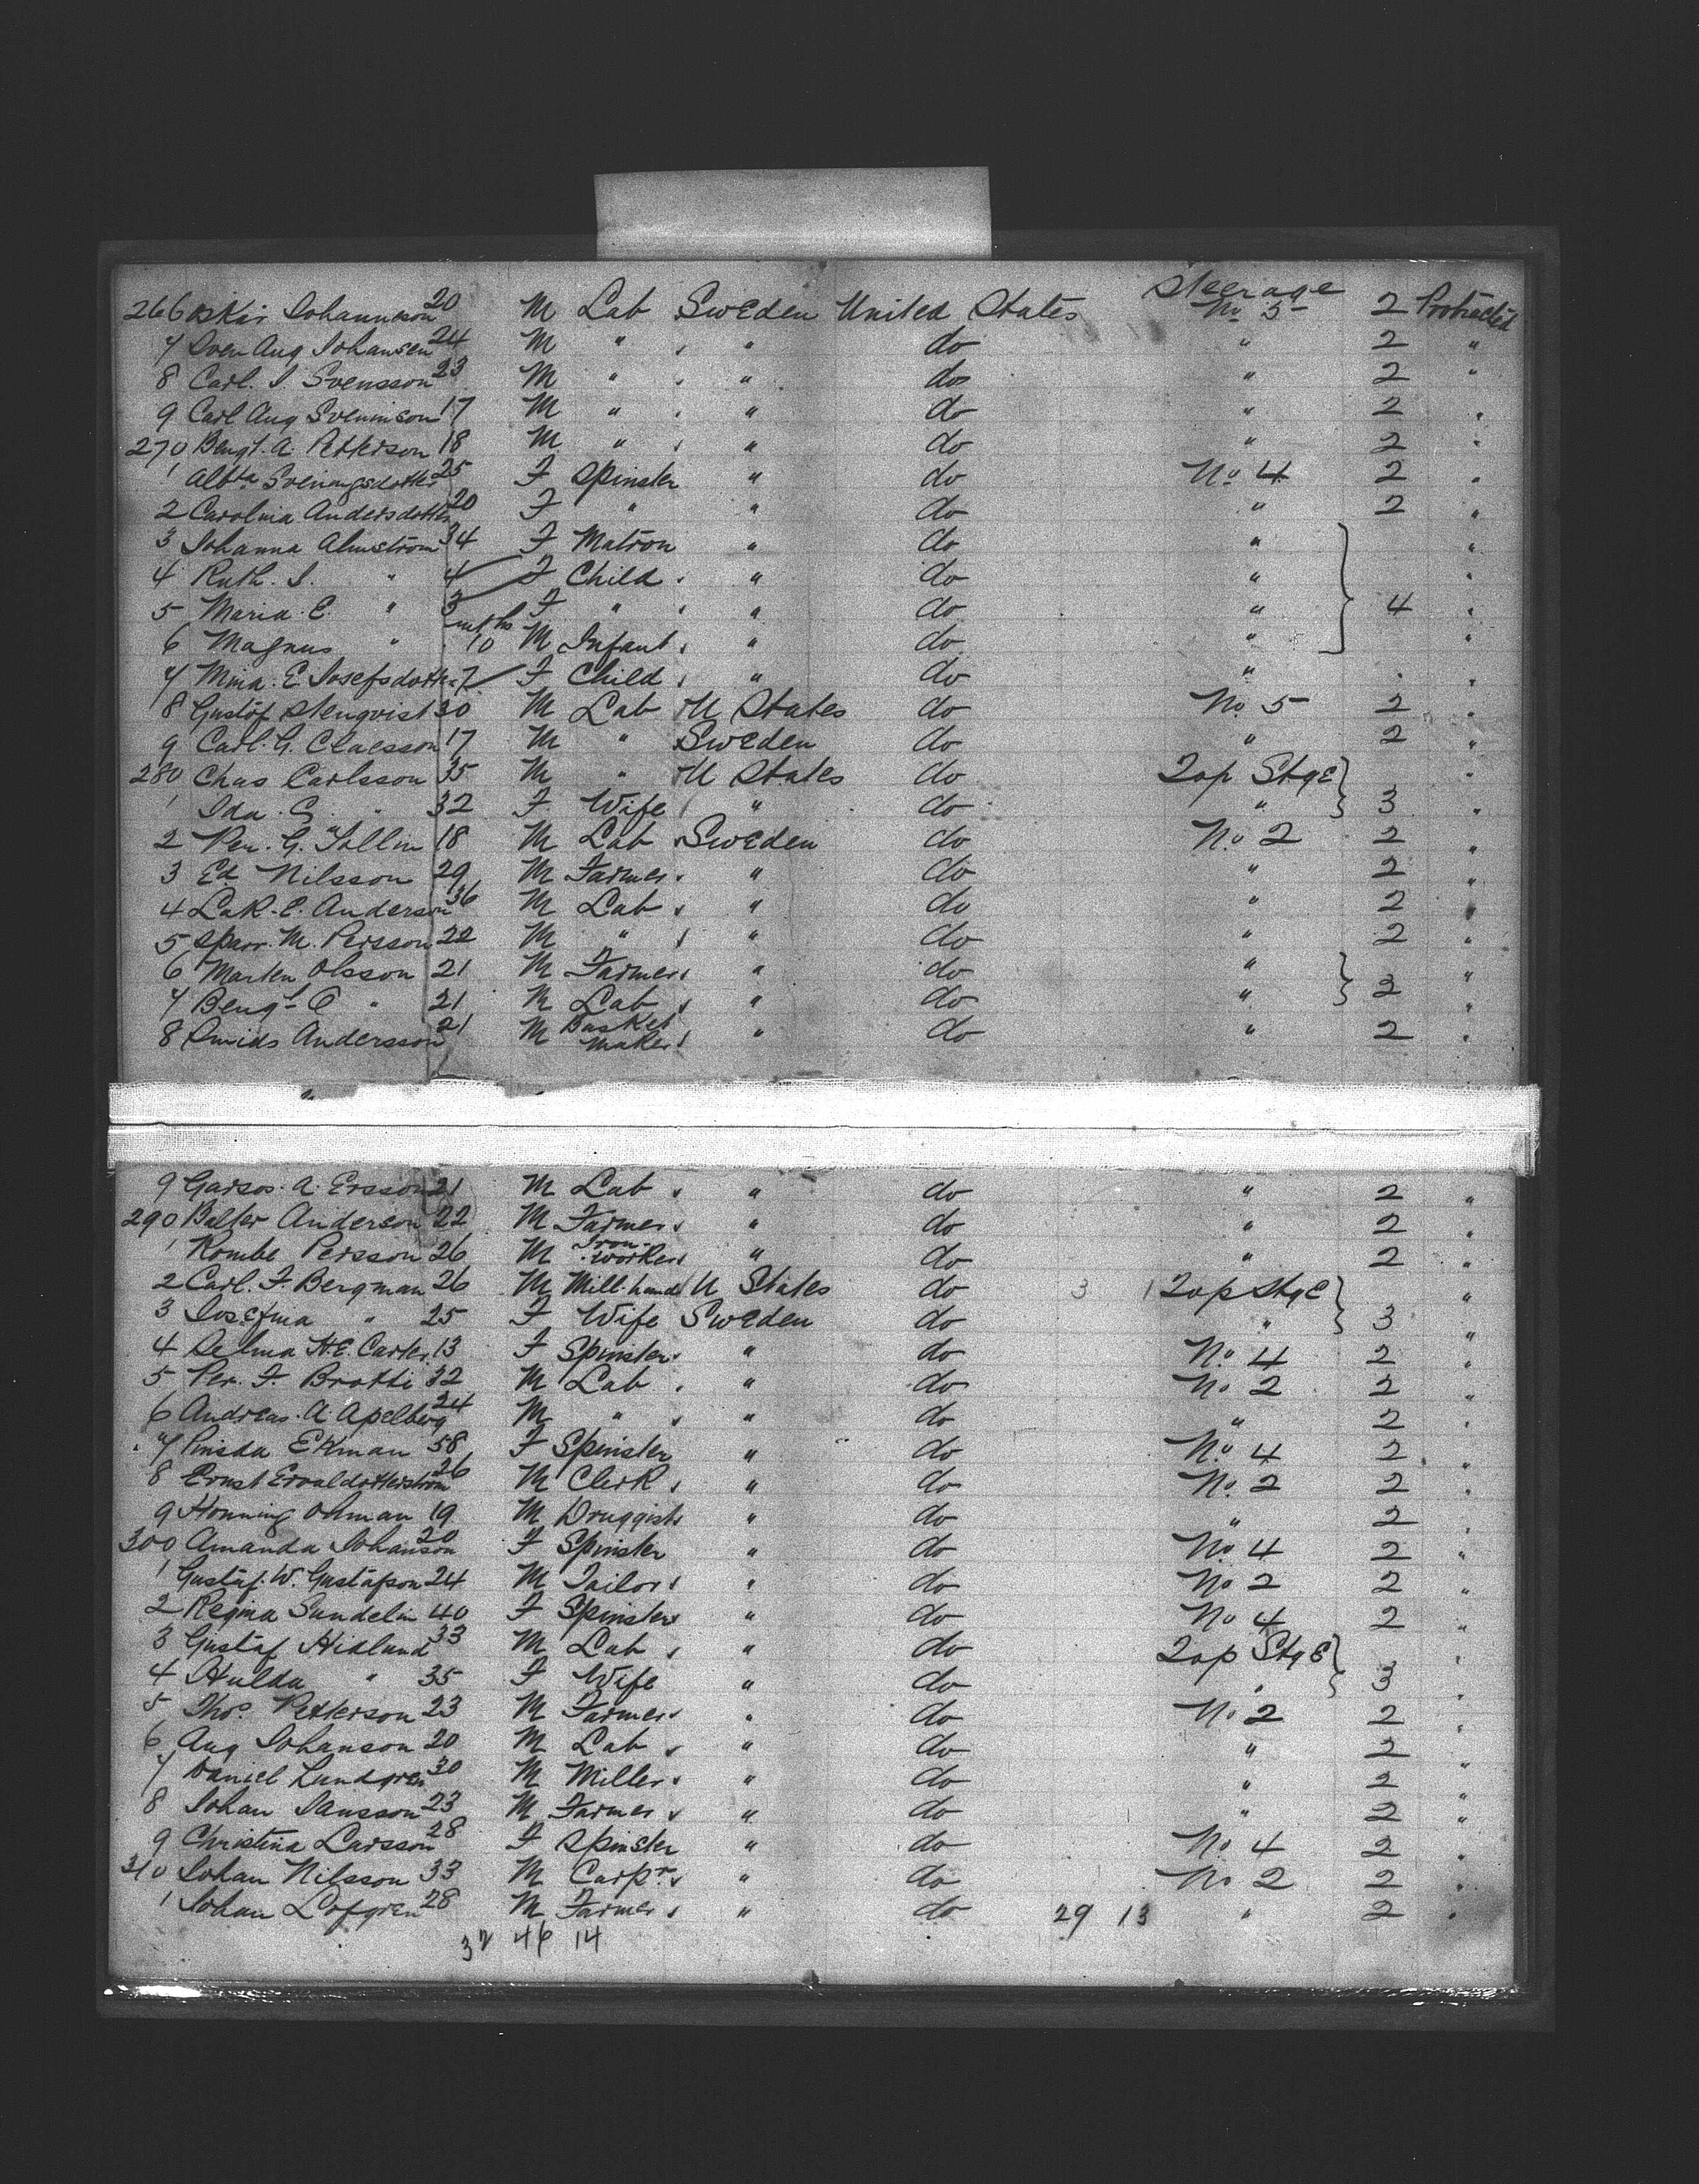 Steerage
266 Oskar Johannson 20 M Lab Sweden United States No 5 2 Protracted
7 Sven Aug Johansen 24 M " " do " 2 "
8 Carl. J. Svensson 23 M " " do " 2 "
9 Carl Aug Sveninson 17 M " " do " 2 "
270 Bengt. A. Petterson 18 M " " do " 2 "
1 Albta Sveningsdotter 25 F Spinster " do No 4 2 "
2 Carolina Andersdotter 20 F " " do " 2 "
3 Johanna Almstrom 34 F Matron " do " "
4 Ruth. J. " 4 F Child " do " "
5 Maria. E. " 3 F " " do " 4 "
6 Magnus " mths 10 M Infant " do " "
7 Mina. E Josefsdotter 7 F Child " do " "
8 Gustof Stenqvist 30 M Lab U States do No 5 2 "
9 Carl. G. Claesson 17 M " Sweden do " 2 "
280 Chas Carlsson 35 M " U States do 2op StgE "
1 Ida. C. " 32 F Wife " do " 3 "
2 Per. G. Tollin 18 M Lab Sweden do No 2 2 "
3 Ed Nilsson 29 M Farmer " do " 2 "
4 Lak. E. Anderson 36 M Lab " do " 2 "
5 M. Persson 22 M " " do " 2 "
6 Marten Olsson 21 M Farmer " do " "
7 Bengt O " 21 M Lab " do " 3 "
8 Andersson 21 M Basket maker " do " 2 "
9 A. Ersson 21 M Lab " do " 2 "
290 Balter Anderson 22 M Farmer " do " 2 "
1 Kombe Persson 26 M Iron-worker " do " 2 "
2 Carl. F. Bergman 26 M Mill-hand U States do 3 1 2op StgE "
3 Josefina " 25 F Wife Sweden do " 3 "
4 Selma H.E. Carter 13 F Spinster " do No 4 2 "
5 Per. F. Brotti 32 M Lab " do No 2 2 "
6 Andreas. A. Apelberg 24 M " " do " 2 "
7 Ekman 58 F Spinster " do No 4 2 "
8 Ernst 26 M Clerk " do No 2 2 "
9 Honning Ohman 19 M Druggist " do " 2 "
300 Amanda Johanson 20 F Spinster " do No 4 2 "
1 Gustaf. W. Gustafson 24 M Tailor " do No 2 2 "
2 Regina Sundelin 40 F Spinster " do No 4 2 "
3 Gustaf Hidlund 33 M Lab " do 2op StgE "
4 Hulda " 35 F Wife " do " 3 "
5 Thos. Petterson 23 M Farmer " do No 2 2 "
6 Aug Johanson 20 M Lab " do " 2 "
7 Daniel Lundgren 30 M Miller " do " 2 "
8 Johan Jansson 23 M Farmer " do " 2 "
9 Christina Larsson 28 F Spinster " do No 4 2 "
310 Johan Nilsson 33 M Carpr " do No 2 2 "
1 Johan Lofgren 28 M Farmer " do 29 13 " 2 "
32 46 14